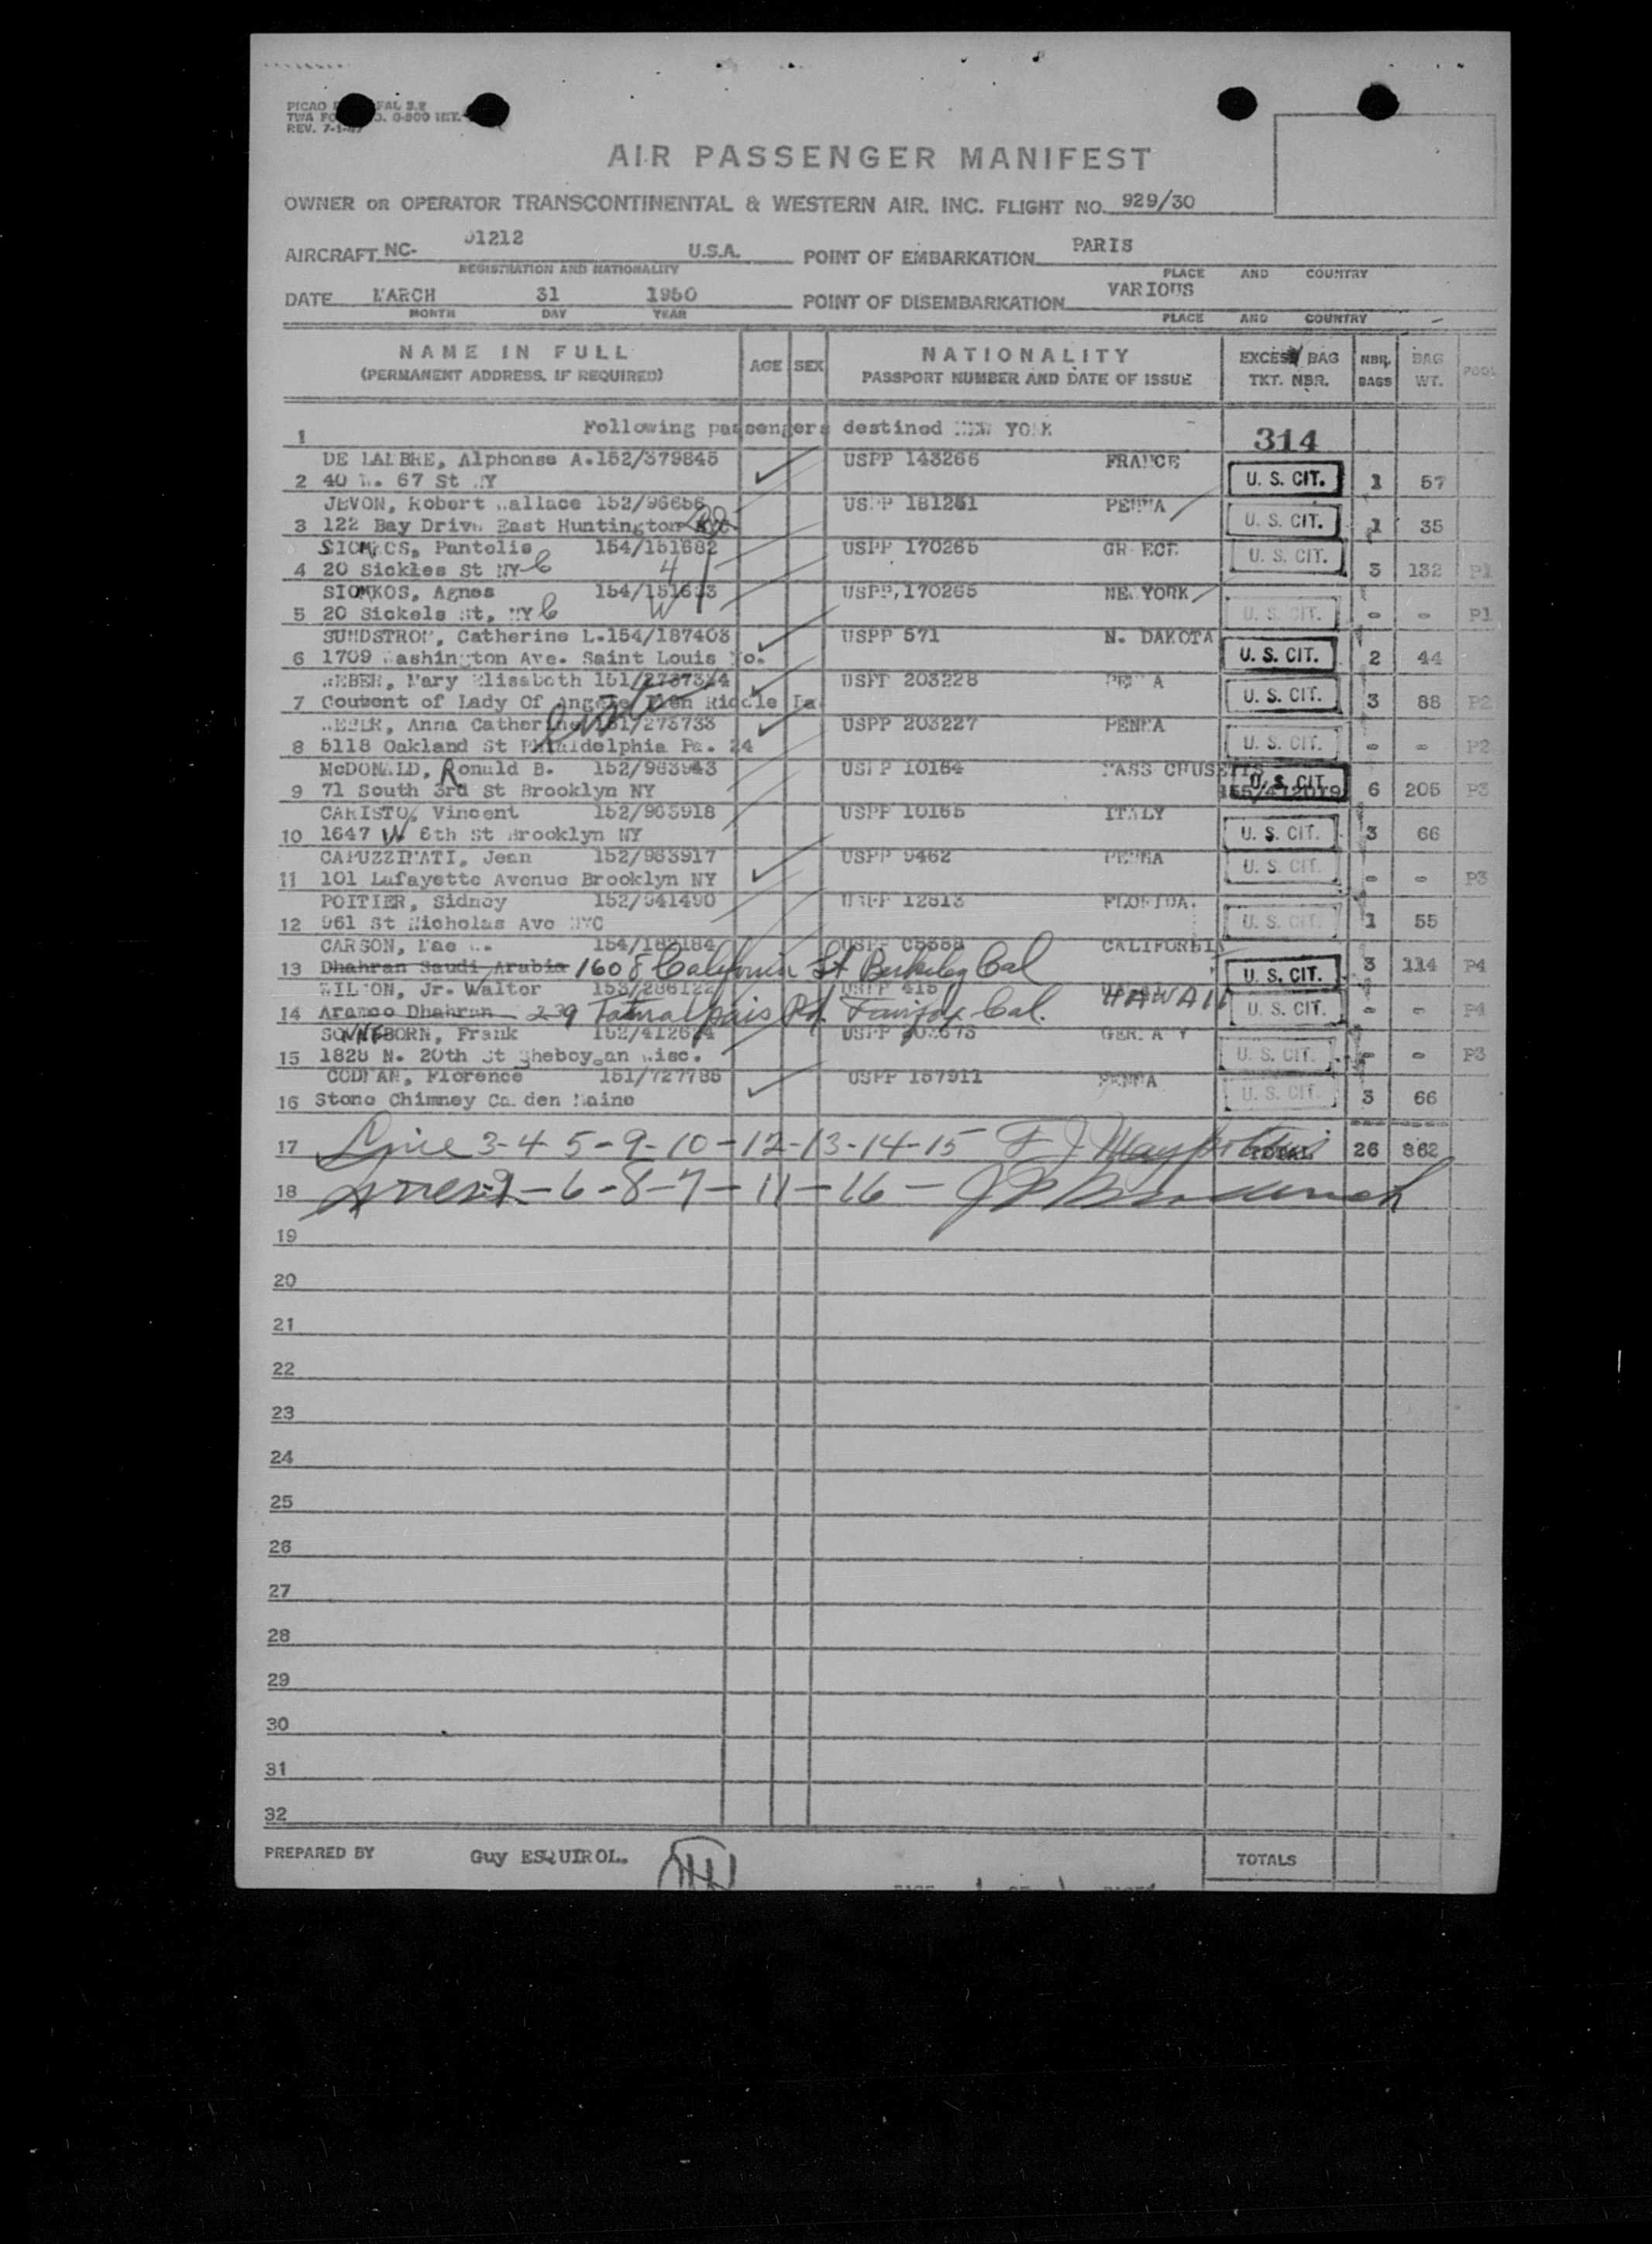 PICAO FAL 3.2
TWA FO O. O-800 INT.
REV. 7-1-
AIR PASSENGER MANIFEST
OWNER OR OPERATOR TRANSCONTINENTAL & WESTERN AIR. INC. FLIGHT NO. 929/30
AIRCRAFT NC- 01212 U.S.A. POINT OF EMBARKATION PARIS
REGISTRATION AND NATIONALITY PLACE AND COUNTRY
DATE MARCH 31 1950 POINT OF DISEMBARKATION VARIOUS
MONTH DAY YEAR PLACE AND COUNTRY
NAME IN FULL AGE SEX NATIONALITY EXCESS BAG NBR. BAG POOL
(PERMANENT ADDRESS. IF REQUIRED) PASSPORT NUMBER AND DATE OF ISSUE TKT. NBR. BAGS WT.
1 Following passengers destined NEW YORK 314
DE Alphonse A. 152/379845 USPP 143266 FRANCE
2 40 W. 67 St NY U. S. CIT. 1 57
JEVON, Robert Wallace 152/96656 USPP 181261 PENNA
3 122 Bay Drive East Huntington U. S. CIT. 1 35
SIOMKOS, Pantelis 154/151682 USPP 170265 GREECE
4 20 Sickles St NY C 4 U. S. CIT. 3 132 P1
SIOMKOS, Agnes 154/151683 USPP, 170265 NEW YORK
5 20 Sickels St, NY C W U. S. CIT. - - P1
SUNDSTROM, Catherine L. 154/187403 USPP 571 N. DAKOTA
6 1709 Washington Ave. Saint Louis Mo. U. S. CIT. 2 44
WEBER, Mary Elisabeth 151/273734 USPP 203228 PENNA
7 Convent of Lady Of Angels Glen Riddle Pa U. S. CIT. 3 88 P2
WEBER, Anna Catherine 151/273733 USPP 203227 PENNA
8 5118 Oakland St Philaldelphia Pa. 24 U. S. CIT. - - P2
McDONALD, Ronald B. 152/963943 USPP 10164 MASSACHUSETTS
9 71 South 3rd St Brooklyn NY 155/412079 U. S. CIT. 6 205 P3
CARISTO, Vincent 152/963918 USPP 10165 ITALY
10 1647 W 6th St Brooklyn NY U. S. CIT. 3 66
CAPUZZIMATI, Jean 152/963917 USPP 9462 PENNA
11 101 Lafayette Avenue Brooklyn NY U. S. CIT. - - P3
POITIER, Sidney 152/941490 USPP 12613 FLORIDA.
12 961 St Nicholas Ave NYC U. S. CIT. 1 55
CARSON, Mae W. 154/182184 USPP CALIFORNIA
13 Dhahran Saudi Arabia 1608 California St Berkeley Cal U. S. CIT. 3 114 P4
WILSON, Jr. Walter 153/286122 USPP 415 HAWAII
14 Aramco Dhahran 239 Tamalpais Rd. Fairfax Cal. U. S. CIT. - - P4
SONNEBORN, Frank 152/412674 USPP GERMANY
15 1828 N. 20th St Sheboygan Wisc. U. S. CIT. - - P3
CODMAN, Florence 151/727785 USPP 157911 PENNA
16 Stone Chimney Camden Maine U. S. CIT. 3 66
17 Line 3-4-5-9-10-12-13-14-15 F J TOTAL 26 862
18 Lines 2-6-8-7-11-16-
19
20
21
22
23
24
25
26
27
28
29
30
31
32
PREPARED BY Guy ESQUIROL. TOTALS